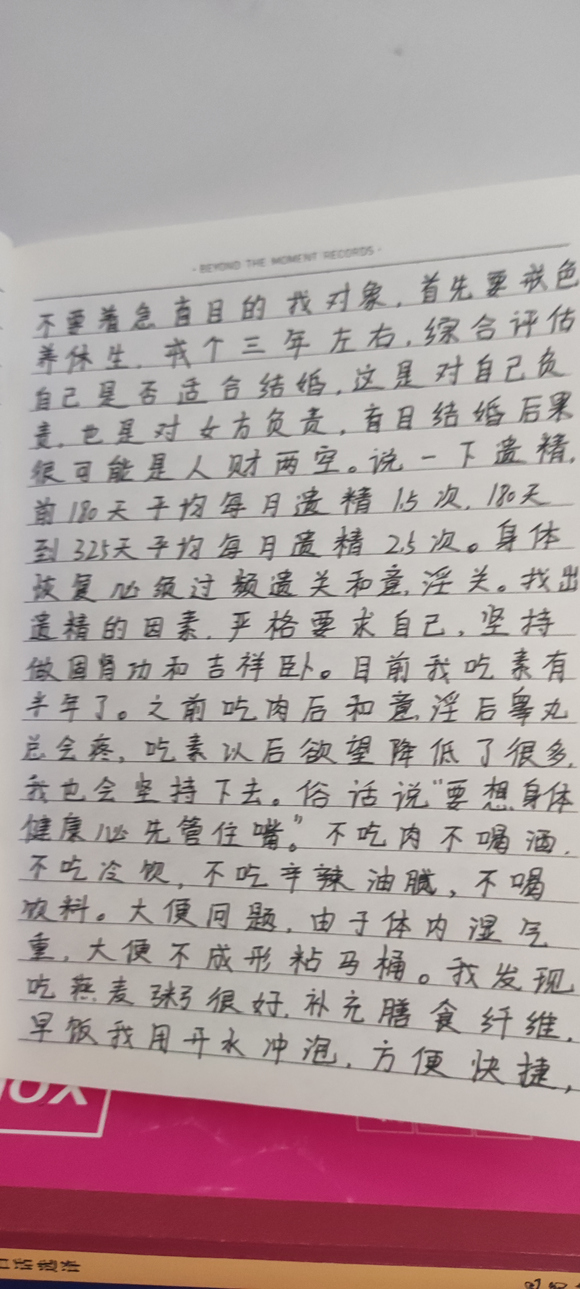 · BEYOND THE MOMENT RECORDS ·
不要着急盲目的找对象，首先要戒色
养休生，戒个三年左右，综合评估
自己是否适合结婚，这是对自己负
责，也是对女方负责，盲目结婚后果
很可能是人财两空。说一下遗精，
前180天平均每月遗精1.5次，180天
到325天平均每月遗精2.5次。身体
恢复必须过频遗关和意淫关。找出
遗精的因素，严格要求自己，坚持
做固肾功和吉祥卧。目前我吃素有
半年了。之前吃肉后和意淫后睾丸
总会疼，吃素以后欲望降低了很多，
我也会坚持下去。俗话说“要想身体
健康必先管住嘴。”不吃肉不喝酒，
不吃冷饮，不吃辛辣油腻，不喝
饮料。大便问题，由于体内湿气
重，大便不成形粘马桶。我发现
吃燕麦粥很好，补充膳食纤维，
早饭我用开水冲泡，方便快捷，
OX
白话